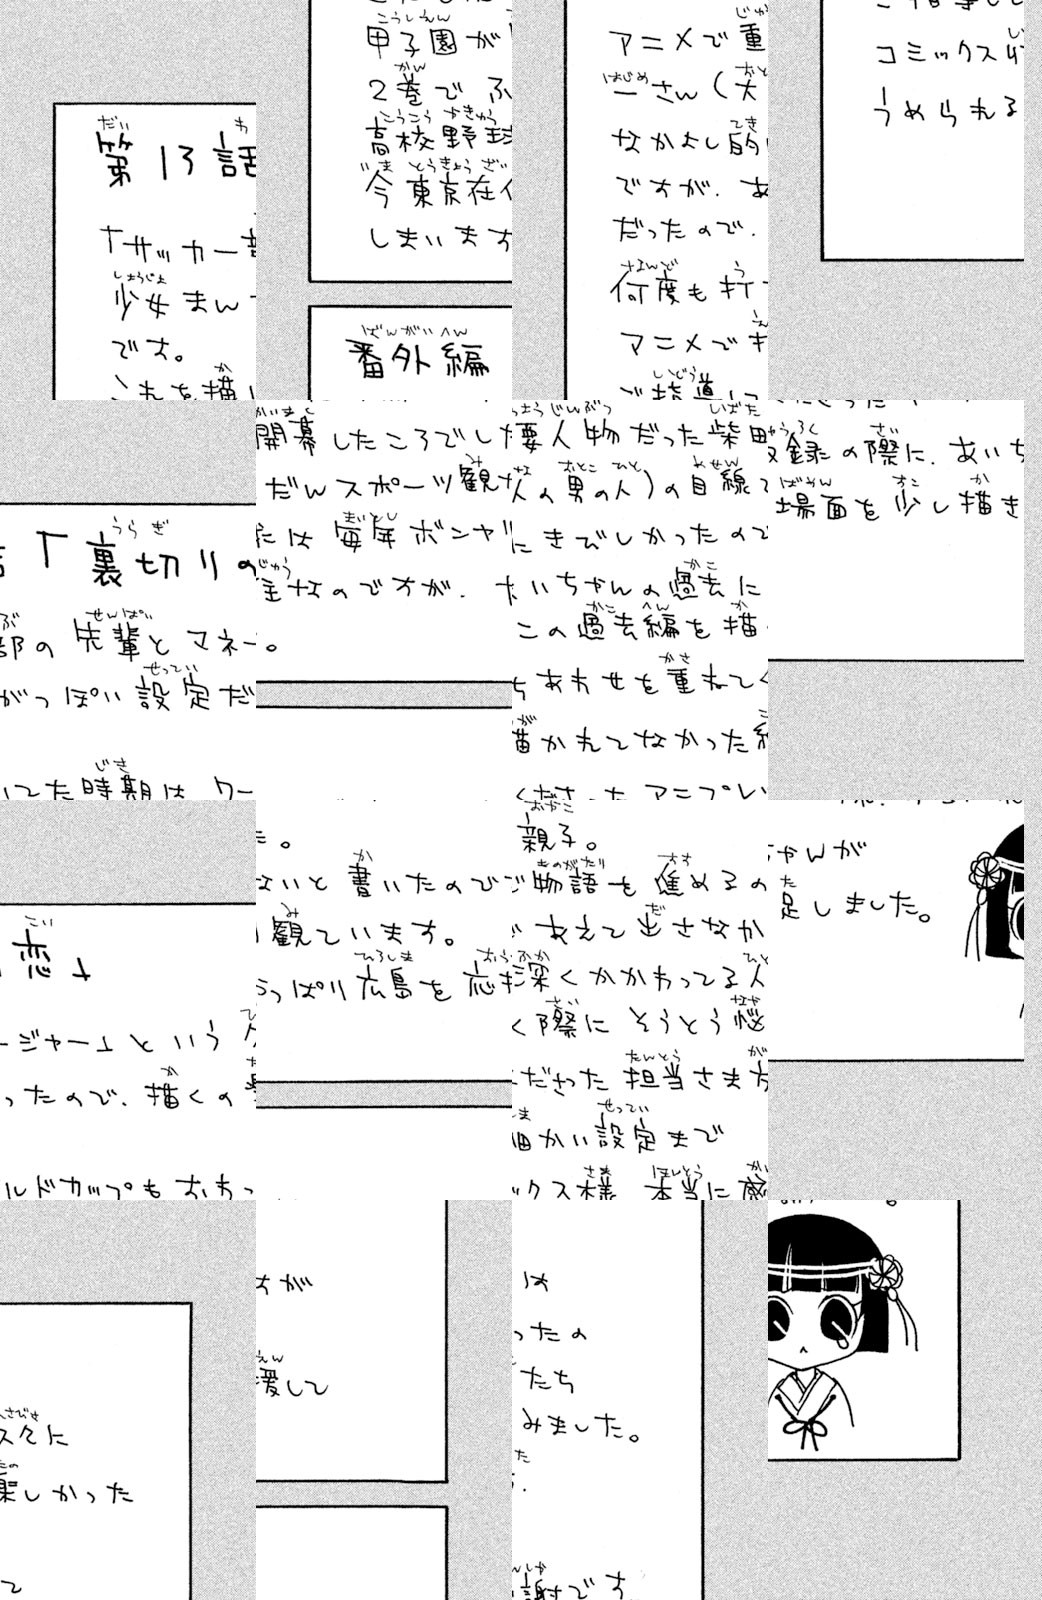 第13話「裏切りの恋」
「サッカー部の先輩とマネージャー」という久々に
少女まんがっぽい設定だったので、描くの楽しかった
です。
これを描いてた時期はワールドカップもおわって
甲子園が開幕したころでした。
2巻でふだんスポーツ観ないと書いたのですが
高校野球は毎年ボンヤリ観ています。
今東京在住なのですが、やっぱり広島を応援して
しまいます。
番外編
アニメで重要人物だった柴田親子。
一さん(大人の男の人)の目線で物語を進めるのは
なかよし的にきびしかったので、あえて出さなかったの
ですが、あいちゃんの過去に深くかかわってる人たち
だったので、この過去編を描く際にそうとう悩みました。
何度も打ちあわせを重ねてくださった担当さま方。
アニメで描かれてなかった細かい設定まで
ご指導くださったアニプレックス様 本当に感謝です。
コミックス収録の際に、あいちゃんが
うめられる場面を少し描き足しました。